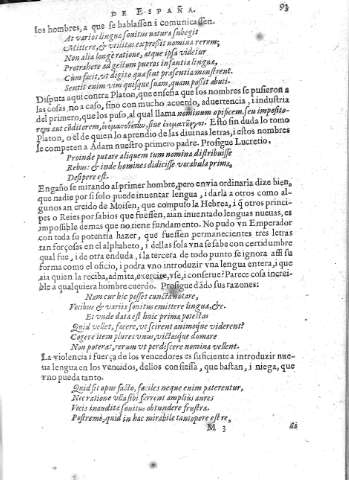 DE ESPAÑA. 93
los hombres, a que se hablassen i comunicassen.
At varios linguæ sonitus natura subegit
Mittere, & vtilitas expressit nomina rerum;
Non alia longè ratione, atque ipsa videtur
Protrahere ad gestum pueros infantia linguæ,
Cum facit, vt digito quæ sint præsentia monstrent.
Sentit enim vim quisque suam, quam possit abuti.
Disputa aqui contra Platon, que enseña que los nombres se pusieron a
las cosas, no a caso, sino con mucho acuerdo, aduertencia, i industria
del primero, que los puso, al qual llama nominum opificem, seu imposito-
rem aut conditorem,
Esto sin duda lo tomo
Platon, o el de quien lo aprendio de las diuinas letras, i estos nombres
le competen a Adam nuestro primero padre. Prosigue Lucretio.
Proinde putare aliquem tum nomina distribuisse
Rebus: & inde homines didicisse vocabula prima,
Desipere est.
Engaño se mirando al primer hombre, pero en via ordinaria dize bien,
que nadie por si solo puede inuentar lengua, i darla a otros como al-
gunos an creido de Moisen, que compuso la Hebrea, i q̃ otros princi-
pes o Reies por sabios que fuessen, aian inuentado lenguas nueuas, es
impossible demas que no tiene fundamento. No pudo vn Emperador
con toda su potentia hazer, que fuessen permanecientes tres letras
tan forçosas en el alphabeto, i dellas sola vna se sabe con certidumbre
qual fue, i de otra en duda, i la tercera de todo punto se ignora assi su
forma como el oficio, i podra vno introduzir vna lengua entera, i que
aia quien la reciba, admita, exercite, vse, i conserue? Parece cosa increi-
ble a qualquiera hombre cuerdo. Prosigue dãdo sus razones:
Nam cur hic posset cuncta notare,
Vocibus & varios sonitus emittere linguæ, &c.
Et vnde data est huic prima potestas
Quid vellet, facere, vt scirent animoque viderent?
Cogere item plures vnus, victosque domare
Non poterat, rerum vt perdiscere nomina vellent.
La violencia i fuerça de los vencedores es suficiente a introduzir nue-
ua lengua en los vencidos, dellos confiessa, que bastan, i niega, que
vno pueda tanto.
Quid sit opus facto, faciles neque enim paterentur,
Nec ratione vlla sibi ferrent amplius aures
Vocis inauditæ sonitus obtundere frustra.
Postremò, quid in hac mirabile tantopere est re,
M 3 Si